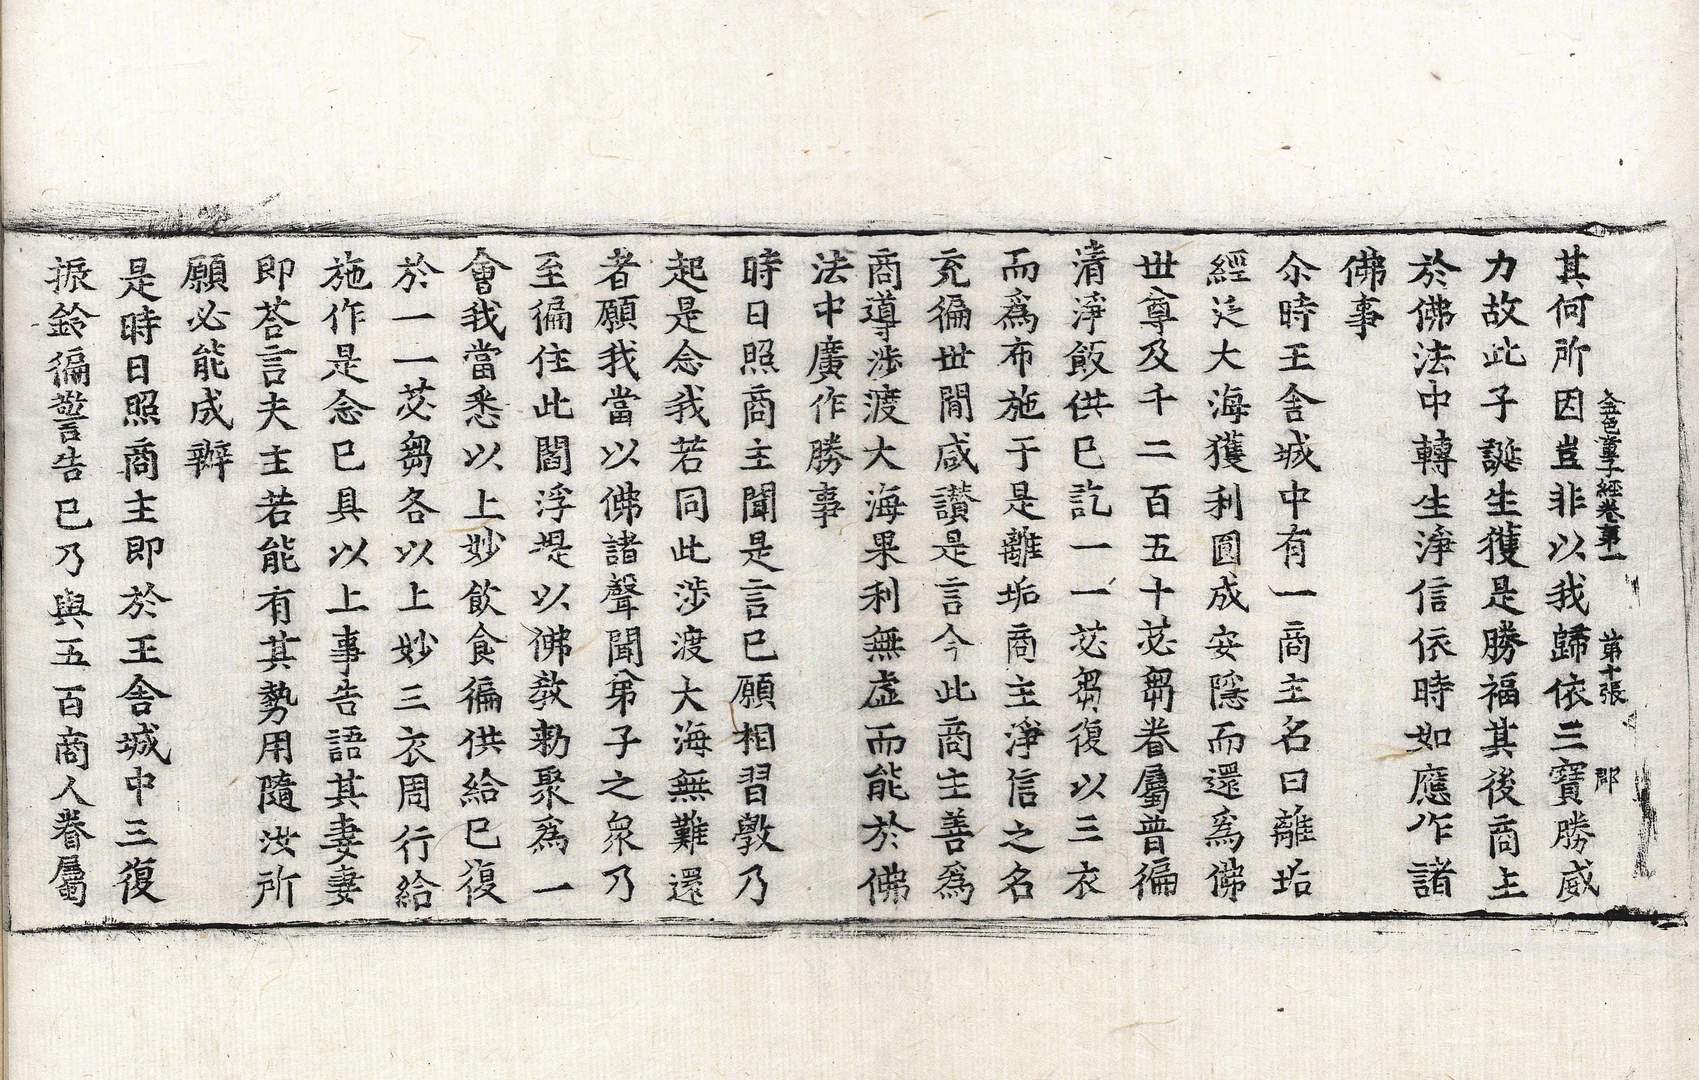 金色童子經卷第一　第十張　郡
其何所因豈非以我歸依三寶勝威
力故此子誕生獲是勝福其後商主
於佛法中轉生淨信依時如應作諸
佛事
尒時王舍城中有一商主名曰離垢
經泛大海獲利圓成安隱而還爲佛
世尊及千二百五十苾芻眷屬普徧
清淨飯供已訖一一苾芻復以三衣
而爲布施于是離垢商主淨信之名
充徧世間咸讃是言今此商主善爲
商導渉渡大海果利無虛而能於佛
法中廣作勝事
時日照商主聞是言已願相習斆乃
起是念我若同此涉渡大海無難還
者願我當以佛諸聲聞弟子之衆乃
至徧住此閻浮提以佛敎勑聚爲一
會我當悉以上妙飮食徧供給已復
於一一苾芻各以上妙三衣周行給
施作是念已具以上事告語其妻妻
即荅言夫主若能有其勢用隨汝所
願必能成辦
是時日照商主即於王舍城中三復
振鈴徧警告已乃與五百商人眷屬